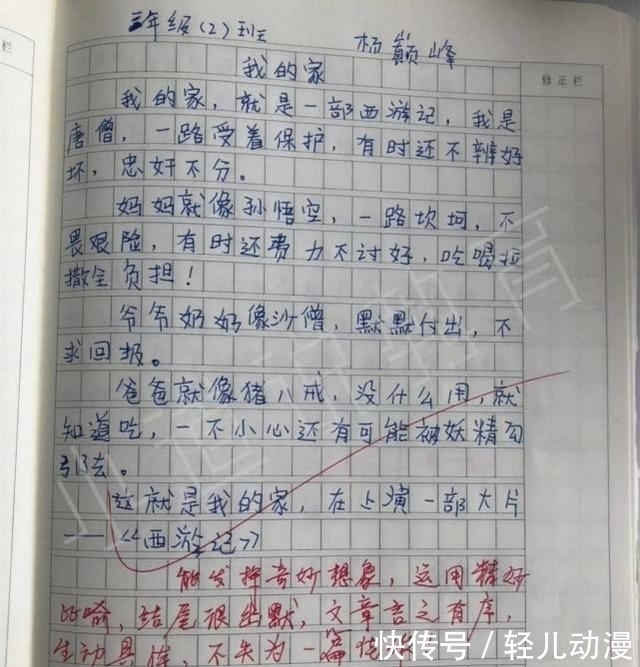 三年级(2)班 杨巅峰
我的家
修正栏
栏
我的家，就是一部西游记，我是
唐僧，一路受着保护，有时还不辨好
坏，忠奸不分。
妈妈就像孙悟空，一路坎坷，不
畏艰险，有时还费力不讨好，吃喝拉
撒全负担！
爷爷奶奶像沙僧，默默付出，不
求回报。
爸爸就像猪八戒，没什么用，就
知道吃，一不小心还有可能被妖精勾
引去。
这就是我的家，在上演一部大片
——《西游记》
能发挥奇妙想象，运用精好
比喻，结尾很幽默，文章言之有序，
生动具体，不失为一篇佳
快传号/轻儿动漫